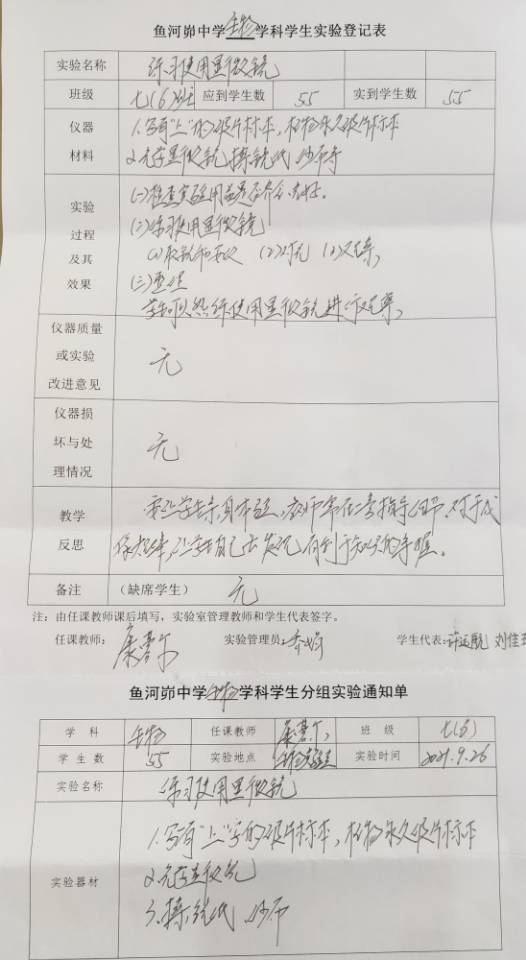 鱼河峁中学生物学科学生实验登记表
实验名称 练习使用显微镜
班级 七(6)班 应到学生数 55 实到学生数 55
仪器材料 1.写有"上"的玻片标本,植物永久玻片标本
2.光学显微镜 擦镜纸 纱布等
实验过程及其效果 (一)检查实验用品是否齐全、完好。
(二)练习使用显微镜
(1)取镜和安放 (2)对光 (3)观察,
(三)
学生可以熟练使用显微镜进行观察,
仪器质量或实验改进意见 无
仪器损坏与处理情况 无
教学反思 亲身,教师指导
让学生自己去发现有利于知识的掌握。
备注 (缺席学生) 无
注:由任课教师课后填写,实验室管理教师和学生代表签字。
任课教师: 实验管理员: 学生代表:
鱼河峁中学生物学科学生分组实验通知单
学科 生物 任课教师 班级 七(6)
学生数 55 实验地点 生物实验室 实验时间 2021.9.26
实验名称 练习使用显微镜
实验器材 1.写有"上"字的玻片标本,植物永久玻片标本
2.光学显微镜
3.擦镜纸 纱布